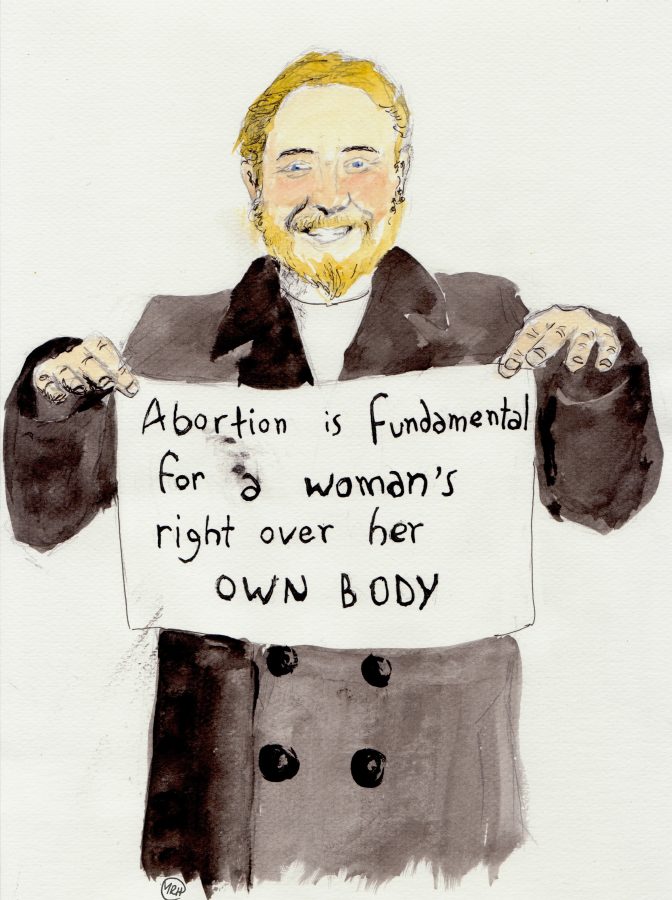 Abortion is fundamental
for a woman's
right over her
OWN BODY
MRH